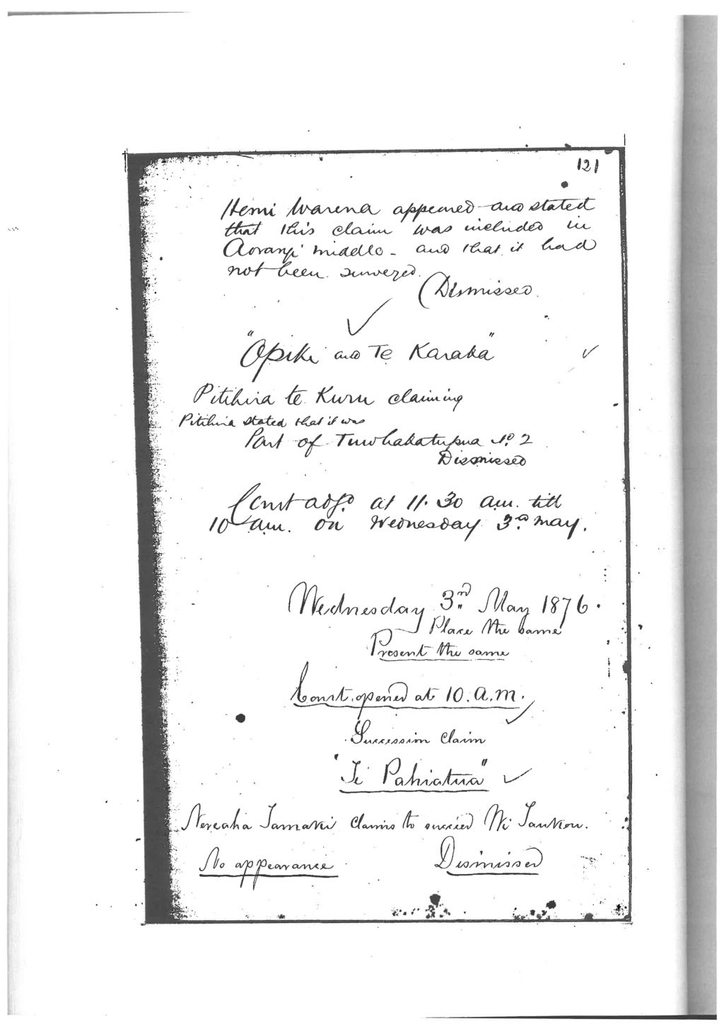 121
Hemi Warena appeared and stated
that this claim was included in
Aorangi middle - and that it had
not been surveyed.
(Dismissed
"Opiki and Te Karaka"
Pitihira te Kuru claiming
Pitihira stated that it was
Part of Tuwhakatupua No 2
Dismissed
Court adjd at 11.30 a.m. till
10 a.m. on Wednesday 3rd May.
Wednesday 3rd May 1876.
Place the same
Present the same
Court opened at 10. a.m.
Succession Claim
"Te Pahiatua"
Nereaha Tamaki claims to succeed Wi
No appearance Dismissed